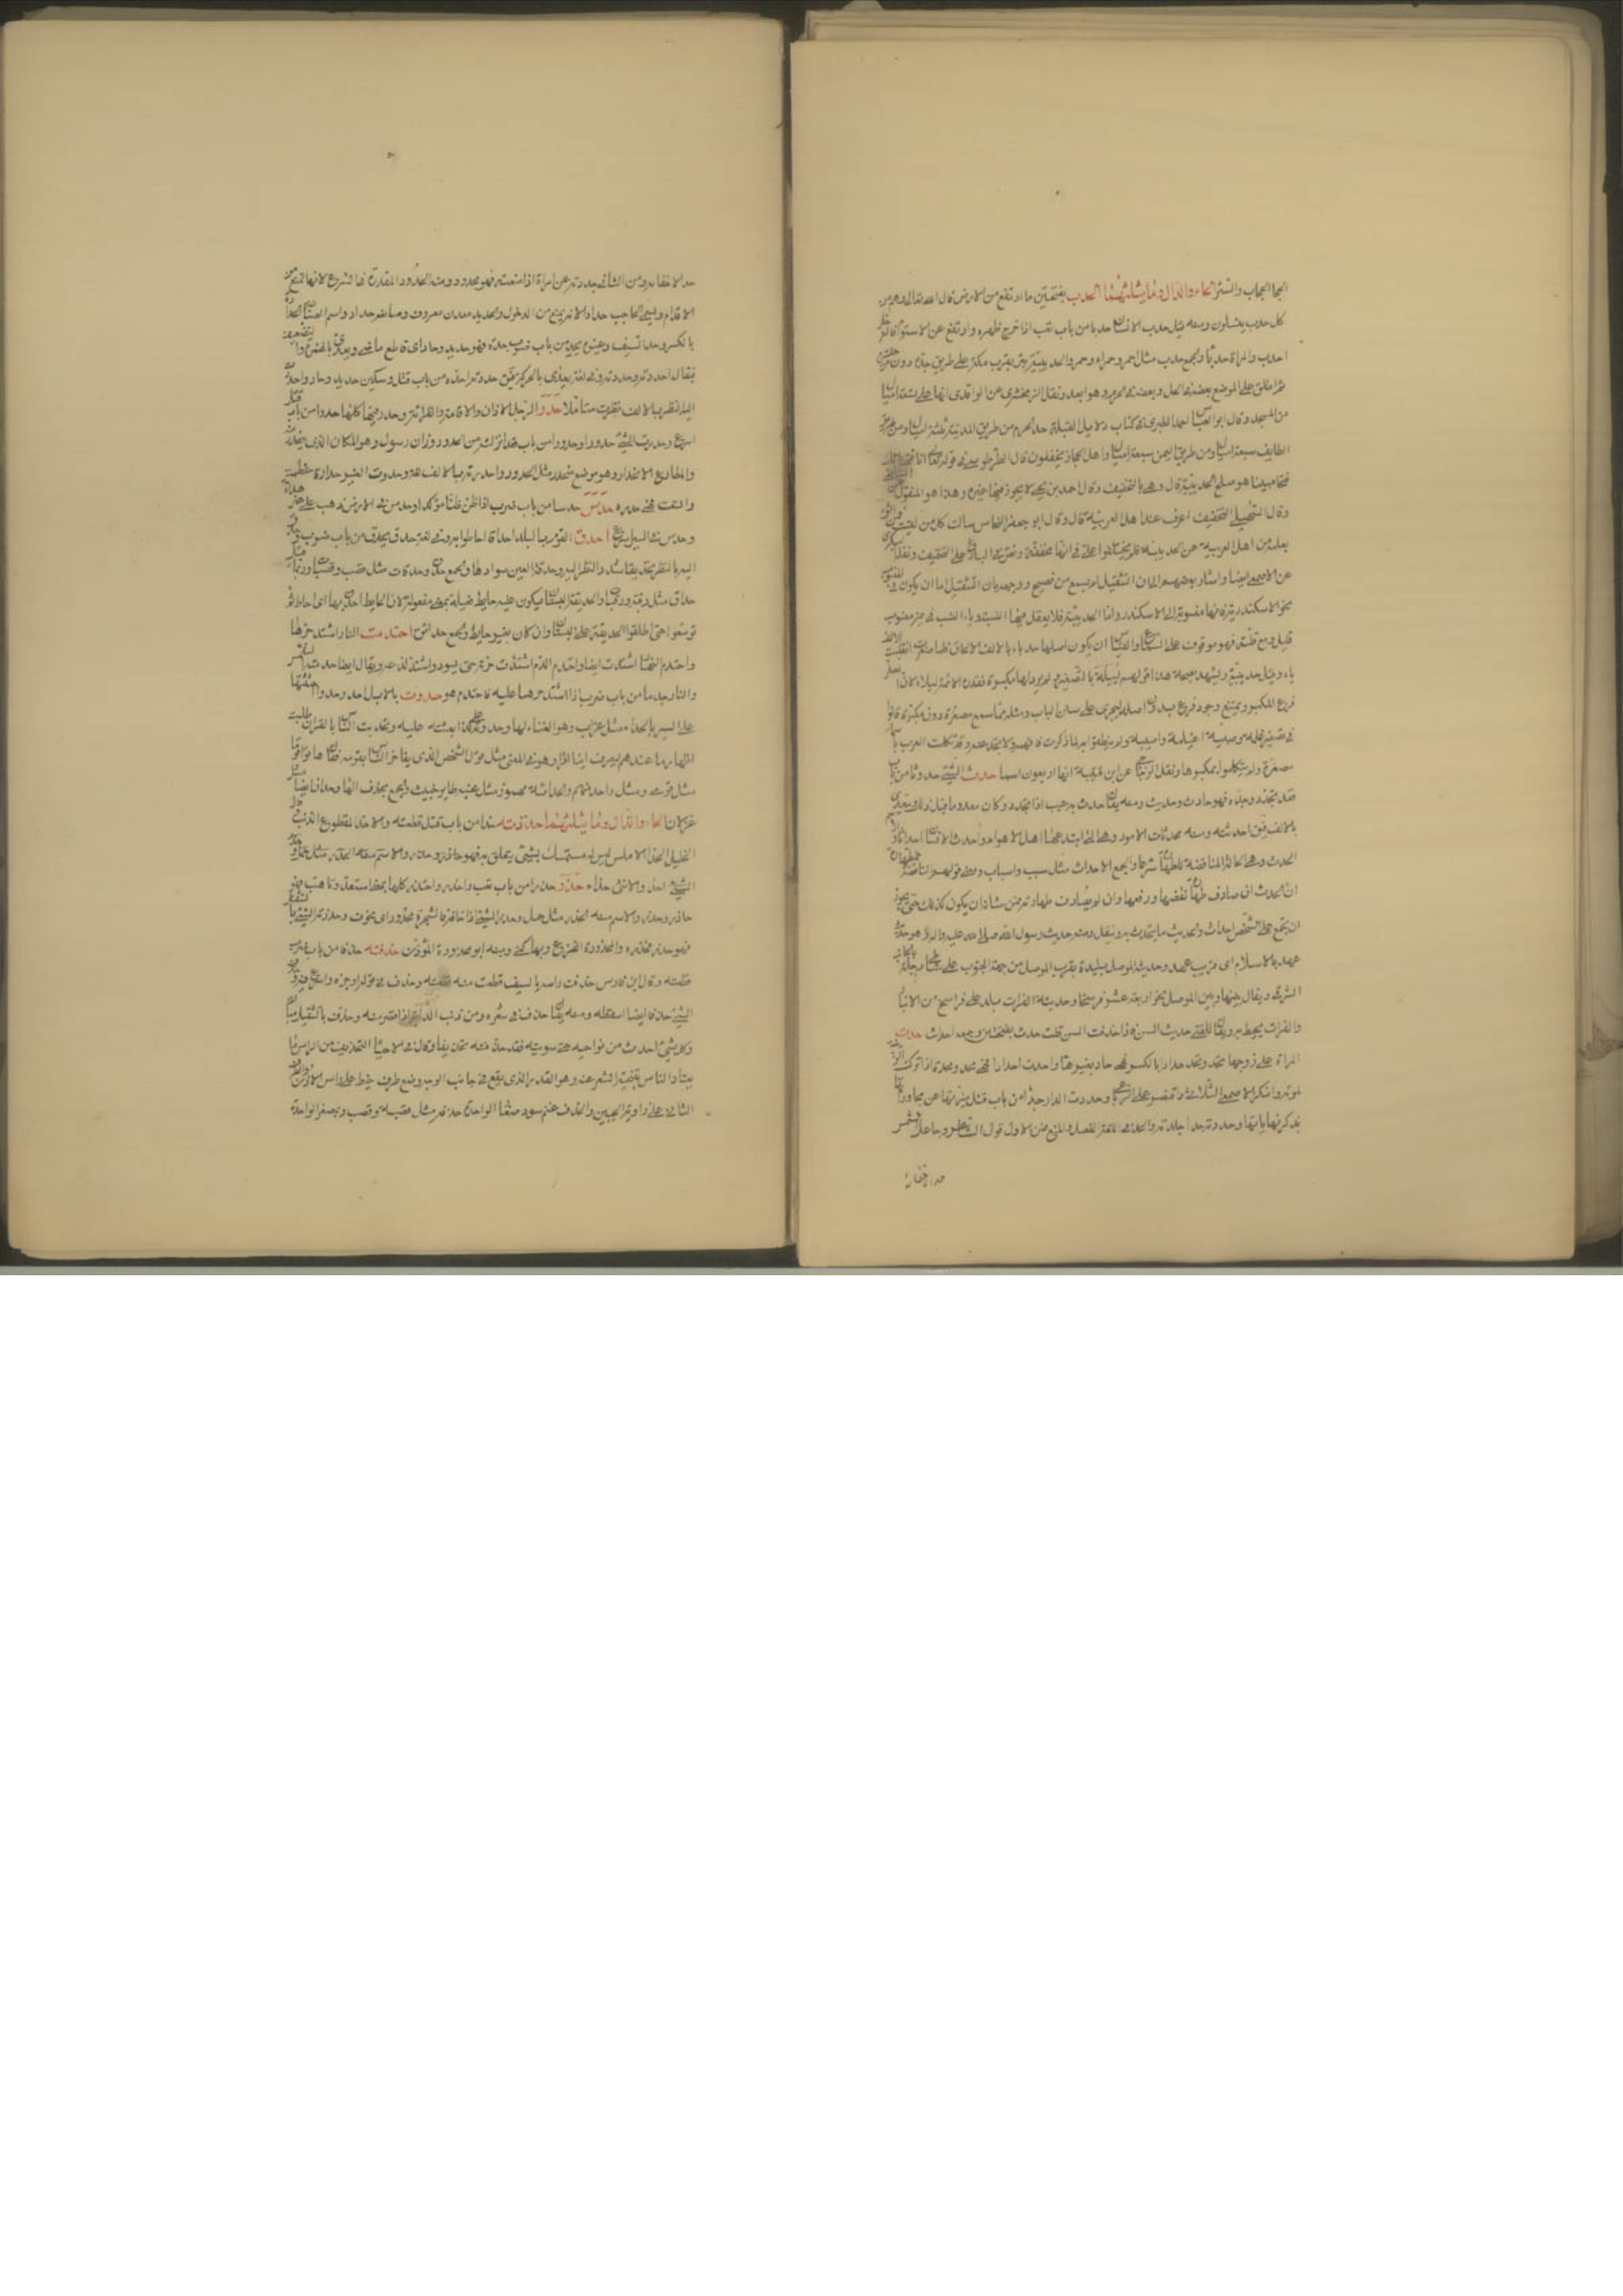 الحجا الحجاب والستر الحاء والدال وما يثلثهما الحدب بفتحتين ما ارتفع من الارض قال الله تعالى وهم من
كل حدب ينسلون ومنه قيل حدب الانسان حدبا من باب تعب اذا خرج ظهره وارتفع عن الاستواء فالرجل
احدب والمراة حدباء والجمع حدب مثل احمر وحمراء وحمر والحديبية بئر بقرب مكة على طريق جدة دون مرحلة
ثم اطلق على الموضع بعضه في الحل وبعضه في الحرم وهو ابعد ونقل الزمخشري عن الواقدي انها على تسعة اميال
من المسجد وقال ابو العباس احمد الطبري في كتاب دلائل القبلة حد الحرم من طريق المدينة ثلثة اميال ومن طريق
الطايف سبعة اميال ومن طريق اليمن سبعة اميال واهل الحجاز يخففون قال الطرطوسي في قوله تعالى انا فتحنا لك
فتحا مبينا هو صلح الحديبية قال وهي بالتخفيف وقال احمد بن يحيى لا يجوز فيها غيره وهذا هو المنقول
وقال السهيلي التخفيف اعرف عند اهل العربية قال وقال ابو جعفر النحاس سالت كل من لقيت
بعلمه من اهل العربية عن الحديبية فلم يختلفوا على في انها مخففة ونقل
عن الاصمعي ايضا واشار بعضهم الى ان التثقيل لم يسمع من فصيح ووجهه بان التثقيل اما ان يكون في المنسوب
نحو الاسكندرية فانها منسوبة الى الاسكندر واما الحديبية فلا يعقل فيها النسبة وياء النسب في غير منسوب
قليل ومع قلته فهو موقوف على السماع والقياس ان يكون اصلها حدباء بالالف الالحاق فلما صغرت انقلبت الالف
ياء وقيل حديبية ويشهد لصحة هذا قولهم لييلة بالتصغير
فرع المكبر ويمتنع وجود فرع بدون اصله ليجري على سنن الباب ومثله مما سمع مصغرة دون مكبرة قالوا
في تصغير غلمة وصبية اغيلمة واصيبية
مصغرة ولم يتكلموا بمكبرها ونقل الزجاج عن ابن قتيبة انها اربعون اسما حدث الشيء حدوثا من باب
فقد تجدد وجده فهو حادث وحديث ومنه يقال حدث به عيب اذا تجدد وكان معدوما قبل ذلك يتعدى
بالالف فيق احدثته ومنه محدثات الامور وهي التي ابتدعها اهل الاهواء واحدث الانسان احداثا
الحدث وهي الحالة المناقضة للطهارة شرعا والجمع الاحداث مثل سبب واسباب ومعنى قولهم الناقضة
ان الحدث ان صادف طهارة نقضها ورفعها وان لم يصادف طهارة فمن شانه ان يكون كذلك حتى يجوز
ان يجتمع على الشخص احداث والحديث ما يتحدث به وينقل ومنه حديث رسول الله صلى الله عليه واله وهو حديث
عهد بالاسلام اي قريب عهد وحديثة الموصل بليدة بقرب الموصل من جهة الجنوب على شاطئ دجلة بالجانب
الشرقي ويقال بينها وبين الموصل نحو اربعة عشر فرسخا وحديثة الفرات بلد على فراسخ من الانبار
والفرات يحيط به ويقال للفتى حديث السن فاذا حذفت السن قلت حدث بفتحتين وجمعه احداث حدت
المراة على زوجها تحد وتحد حدادا بالكسر فهي حاد بغير هاء واحدت احدادا فهي محد ومحدة اذا تركت الزينة
لموته وانكر الاصمعي الثلاثي واقتصر على الرباعي وحددت الدار حدا من باب قتل ميزتها عن مجاوراتها
بذكر نهاياتها وحددته حدا جلدته والحد في اللغة الفصل والمنع فمن الاول قول الشاعر وجاعل الشمس
حدا لاخفاء به
حدا لاخفاء به ومن الثاني حددته عن امره اذا منعته فهو محدود ومنه الحدود المقدرة في الشرع لانها تمنع من
الاقدام ويسمى الحاجب حدادا لانه يمنع من الدخول والحديد معدن معروف وصانعه حداد واسم الصناعة الحدادة
بالكسر وحد السيف وغيره يحد من باب ضرب حدة فهو حديد وحاد اي قاطع ماض ويعدى بالهمزة والتضعيف
فيقال احددته وحددته وفي لغة يعدى بالحركة فيق حددته احده من باب قتل وسكين حديد وحاد واحددت
اليه النظر بالالف نظرت متاملا حدر الرجل الاذان والاقامة والقراءة وحدر فيها كلها حدرا من باب قتل
اسرع وحدرت الشيء حدورا من باب قعد انزلته من الحدور وزان رسول وهو المكان الذي ينحدر منه
والمطاوع الانحدار وهو موضع منحدر مثل الحدور واحدرته بالالف لغة وحدرت العين حدارة عظمت
واتسعت فهي حدرة حدس حدسا من باب ضرب اذا ظن ظنا مؤكدا وحدس في الارض ذهب على غير هداية
وحدس في السير اسرع احدق القوم بالبلد احداقا احاطوا به وفي لغة حدق يحدق من باب ضرب وحدق
اليه بالنظر تحديقا شدد النظر اليه وحدقة العين سوادها والجمع حدق وحدقات مثل قصب وقصبات وربما قيل
حداق مثل رقبة ورقاب والحديقة البستان يكون عليه حايط فعيلة بمعنى مفعولة لان الحايط احدق بها اي احاط ثم
توسعوا حتى اطلقوا الحديقة على البستان وان كان بغير حايط والجمع حدائق احتدمت النار اشتد حرها
واحتدم النهار اشتدت ايضا واحتدم الدم اشتدت حمرته حتى يسود واشتد لذعه ويقال ايضا حدمت الشمس
والنار حدما من باب ضرب اذا اشتد حرها عليه فاحتدم هو حدوت بالابل احدو حدوا حثثتها
على السير بالحداء مثل غراب وهو الغناء لها وحدوته على كذا بعثته عليه وتحديت الناس بالقران طلبت
اظهار ما عندهم ليعرف اينا اقرا وهو في المعنى مثل قول الشخص الذي يفاخر الناس بقومه هاتوا قوما
مثل قومي ومثل واحد منهم والحداة مهموز مثل عنبة طاير خبيث والجمع بحذف الهاء وحدان ايضا مثل
غزلان الحاء والذال وما يثلثهما حذذته حذا من باب قتل قطعته والاحذ المقطوع الذنب قال
الخليل الاحذ الاملس ليس له مستمسك لشيء يتعلق به
حذر حذرا من باب تعب واحتذر واحترز كلها بمعنى استعد وتاهب فهو
حاذر وحذر والاسم منه الحذر مثل حمل وحذر الشيء اذا خافه فالشيء محذور اي مخوف وحذرته الشيء بالتثقيل
فحذره والمحذورة الفزع وبها كني ومنه ابو محذورة المؤذن حذفته حذفا من باب ضرب
قطعته وقال ابن فارس حذفت راسه بالسيف قطعت منه قطعة وحذف في قوله اوجزه واسرع فيه
الشيء حذفا ايضا اسقطه ومنه يقال حذف من شعره ومن ذنب الدابة اذا قصر منه وحذف بالتثقيل مبالغة
وكل شيء اخذت من نواحيه حتى سويته فقد حذفته تحذيفا وقال في الاحياء التحذيف من الراس ما
يعتاد الناس تنحية الشعر عنه وهو القدر الذي يقع في جانب الوجه وضع طرف خيط على راس الاذن والطرف
الثاني على زاوية الجبين والحذف غنم سود صغار الواحدة حذفة مثل قصبة وقصب وبمصغر الواحدة